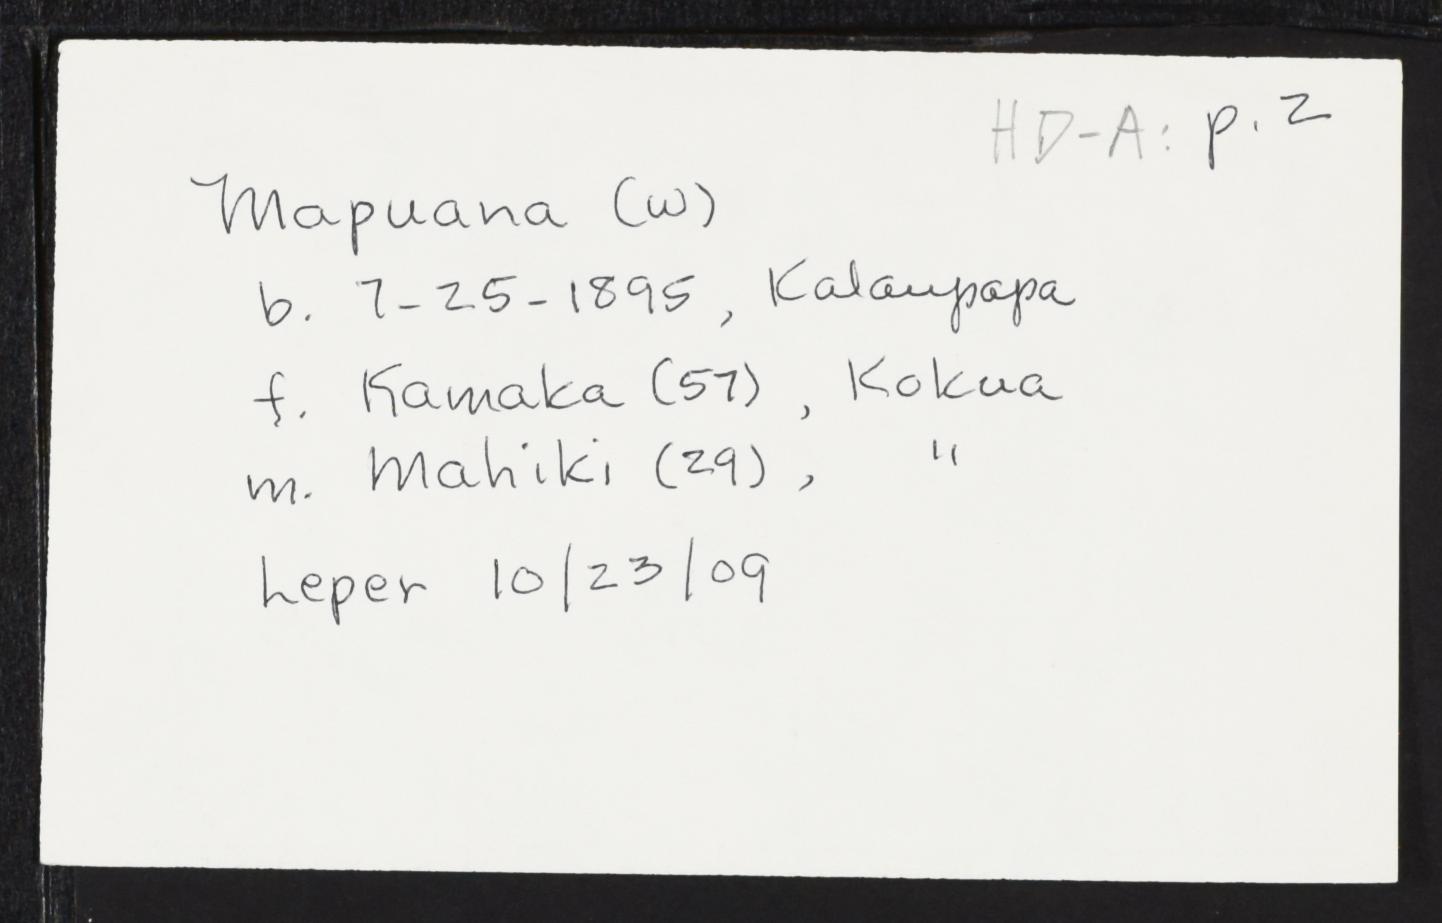 HD-A: p. 2
Mapuana (w)
b. 7-25-1895, Kalaupapa
f. Kamaka (57), Kokua
m. Mahiki (29), "
Leper 10/23/09